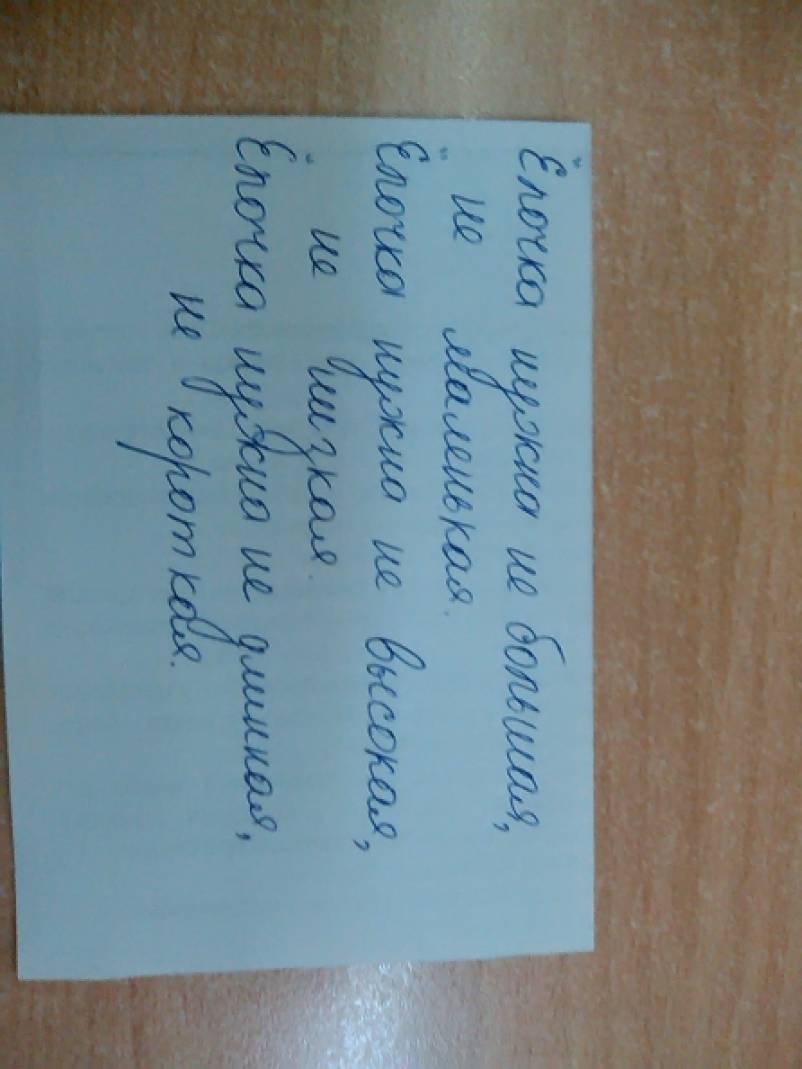 Ёлочка нужна не большая,
не маленькая.
Ёлочка нужна не высокая,
не низкая.
Ёлочка нужна не длинная,
не короткая.